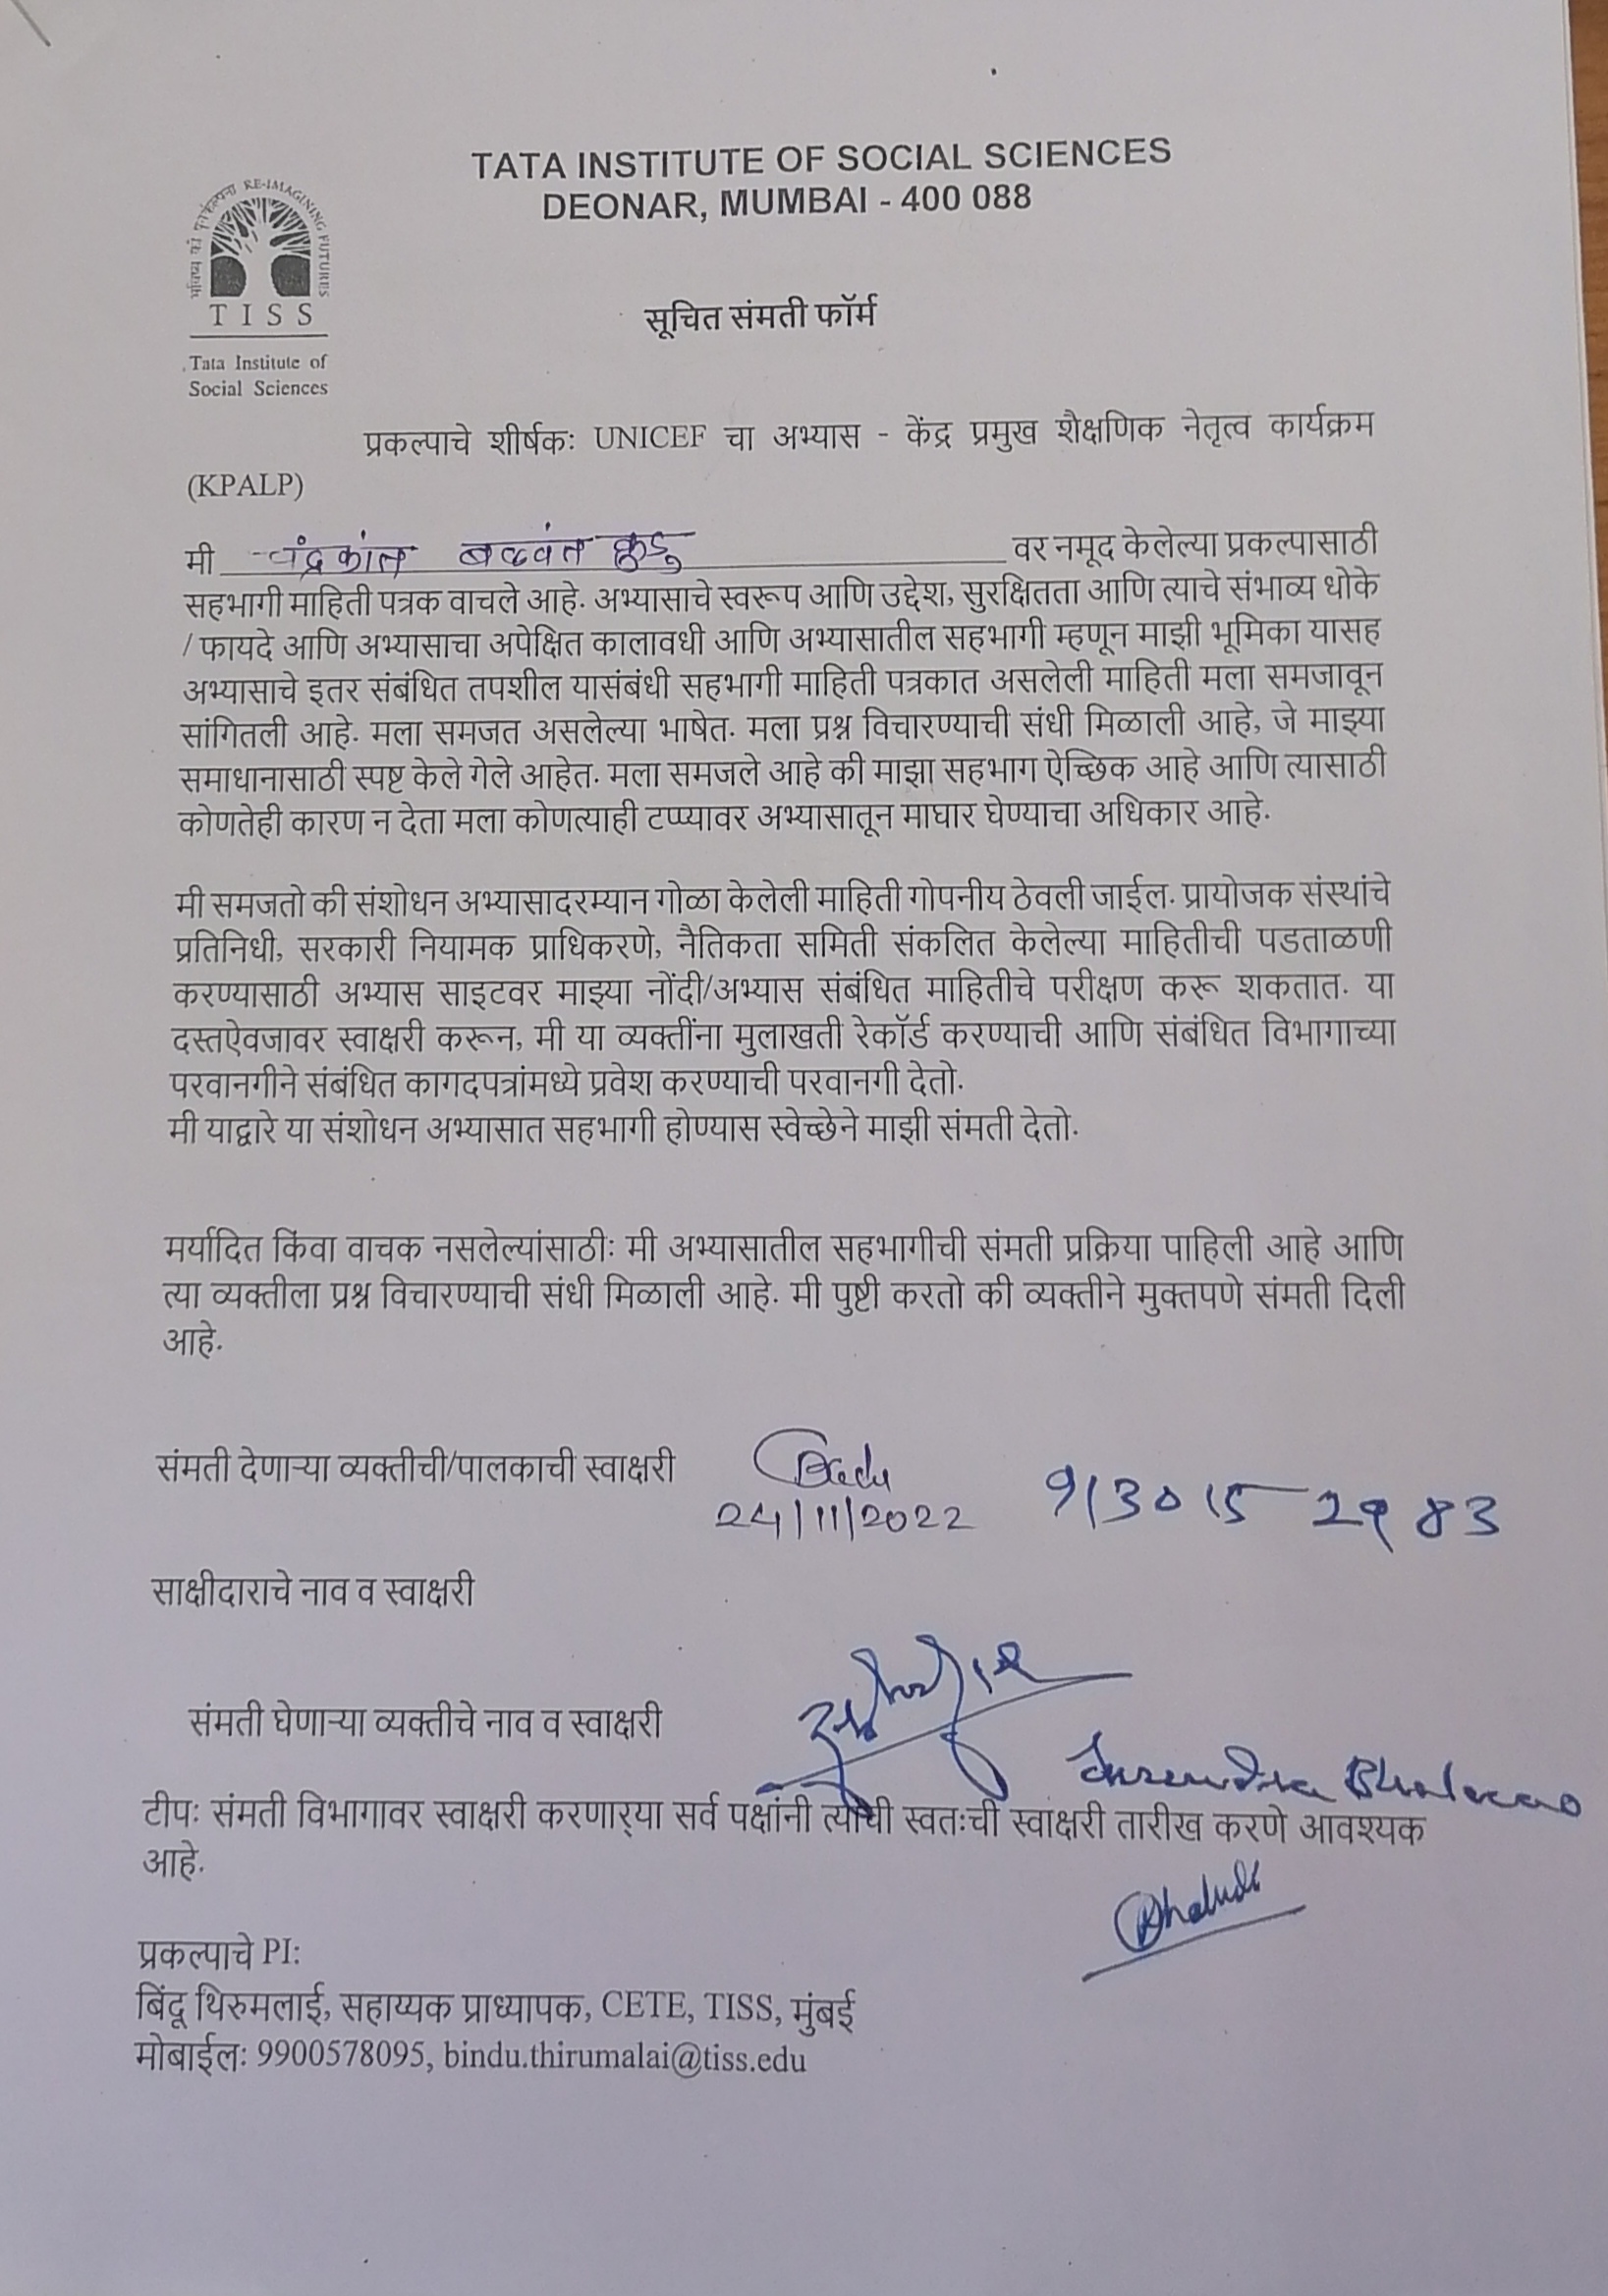 TATA INSTITUTE OF SOCIAL SCIENCES
DEONAR, MUMBAI - 400 088
RE-IMAGINING FUTURES
T I S S
Tata Institute of
Social Sciences
सूचित संमती फॉर्म
प्रकल्पाचे शीर्षकः UNICEF चा अभ्यास - केंद्र प्रमुख शैक्षणिक नेतृत्व कार्यक्रम
(KPALP)
मी चंद्रकांत बळवंत वर नमूद केलेल्या प्रकल्पासाठी
सहभागी माहिती पत्रक वाचले आहे. अभ्यासाचे स्वरूप आणि उद्देश, सुरक्षितता आणि त्याचे संभाव्य धोके
/ फायदे आणि अभ्यासाचा अपेक्षित कालावधी आणि अभ्यासातील सहभागी म्हणून माझी भूमिका यासह
अभ्यासाचे इतर संबंधित तपशील यासंबंधी सहभागी माहिती पत्रकात असलेली माहिती मला समजावून
सांगितली आहे. मला समजत असलेल्या भाषेत. मला प्रश्न विचारण्याची संधी मिळाली आहे, जे माझ्या
समाधानासाठी स्पष्ट केले गेले आहेत. मला समजले आहे की माझा सहभाग ऐच्छिक आहे आणि त्यासाठी
कोणतेही कारण न देता मला कोणत्याही टप्प्यावर अभ्यासातून माघार घेण्याचा अधिकार आहे.
मी समजतो की संशोधन अभ्यासादरम्यान गोळा केलेली माहिती गोपनीय ठेवली जाईल. प्रायोजक संस्थांचे
प्रतिनिधी, सरकारी नियामक प्राधिकरणे, नैतिकता समिती संकलित केलेल्या माहितीची पडताळणी
करण्यासाठी अभ्यास साइटवर माझ्या नोंदी/अभ्यास संबंधित माहितीचे परीक्षण करू शकतात. या
दस्तऐवजावर स्वाक्षरी करून, मी या व्यक्तींना मुलाखती रेकॉर्ड करण्याची आणि संबंधित विभागाच्या
परवानगीने संबंधित कागदपत्रांमध्ये प्रवेश करण्याची परवानगी देतो.
मी याद्वारे या संशोधन अभ्यासात सहभागी होण्यास स्वेच्छेने माझी संमती देतो.
मर्यादित किंवा वाचक नसलेल्यांसाठीः मी अभ्यासातील सहभागीची संमती प्रक्रिया पाहिली आहे आणि
त्या व्यक्तीला प्रश्न विचारण्याची संधी मिळाली आहे. मी पुष्टी करतो की व्यक्तीने मुक्तपणे संमती दिली
आहे.
संमती देणाऱ्या व्यक्तीची/पालकाची स्वाक्षरी
24/11/2022
साक्षीदाराचे नाव व स्वाक्षरी
संमती घेणाऱ्या व्यक्तीचे नाव व स्वाक्षरी
टीपः संमती विभागावर स्वाक्षरी करणाऱ्या सर्व पक्षांनी त्यांची स्वतःची स्वाक्षरी तारीख करणे आवश्यक
आहे.
प्रकल्पाचे PI:
बिंदू थिरुमलाई, सहाय्यक प्राध्यापक, CETE, TISS, मुंबई
मोबाईलः 9900578095, bindu.thirumalai@tiss.edu